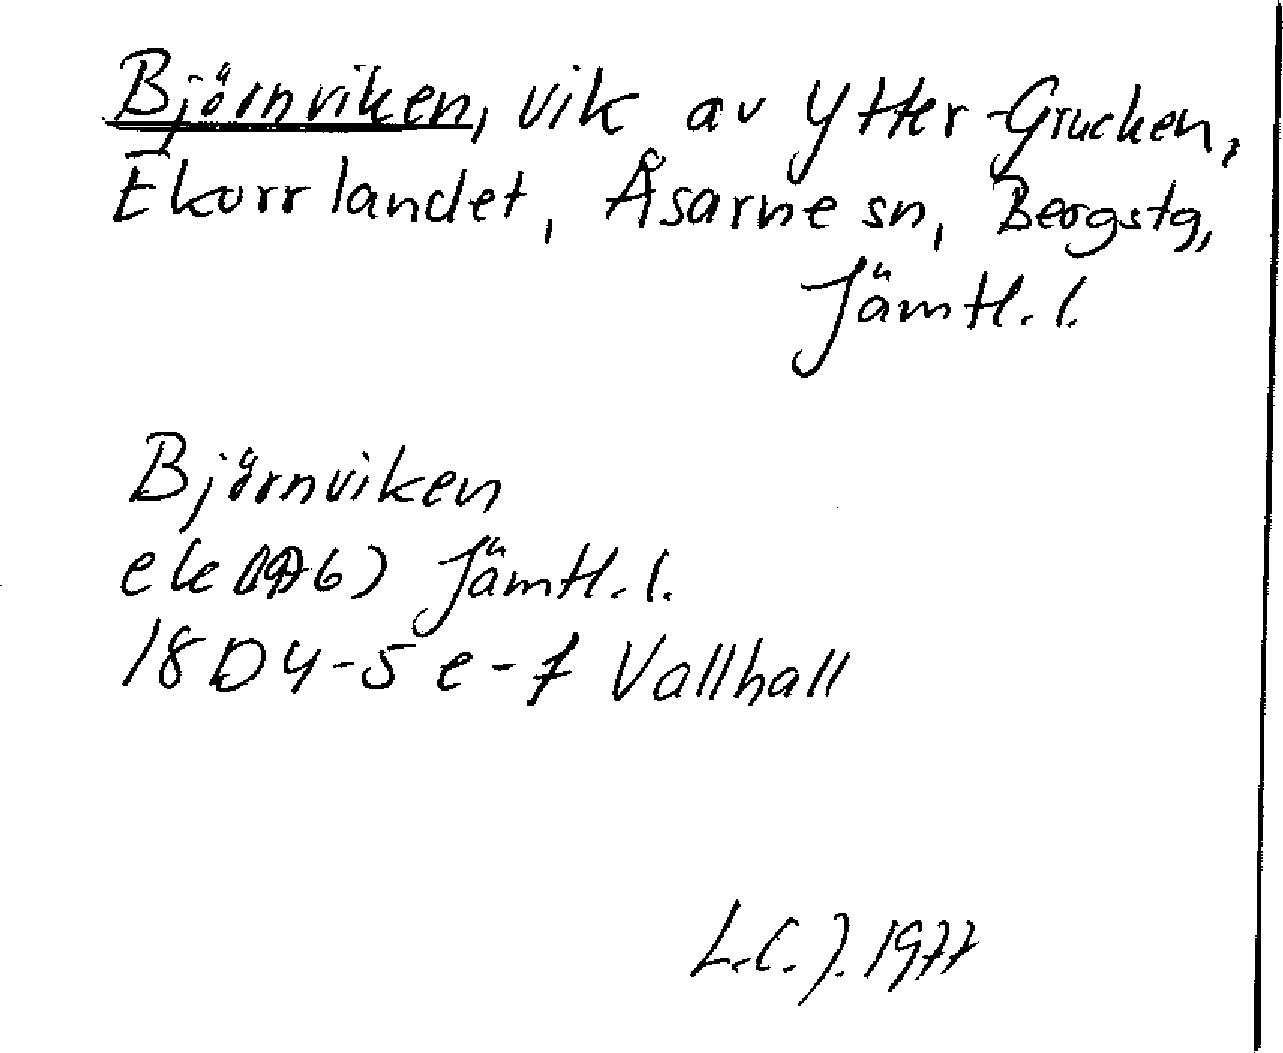 Björnviken, vik av Ytter-Grucken,
Ekorrlandet, Åsarne sn, Bergstg,
Jämtl. l.
Björnviken
ek (1976) Jämtl. l.
18 D 4-5 e-f Vallhall
L.C.J. 1977